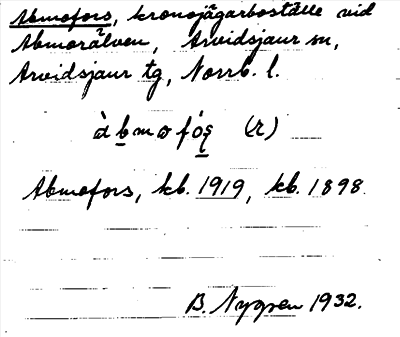 Abmofors, kronojägarboställe vid
Abmorälven, Arvidsjaur sn,
Arvidsjaur tg, Norrb. l.
àbmofóş (r)
Abmofors, kb. 1919, kb. 1898
B. Nygren 1932.